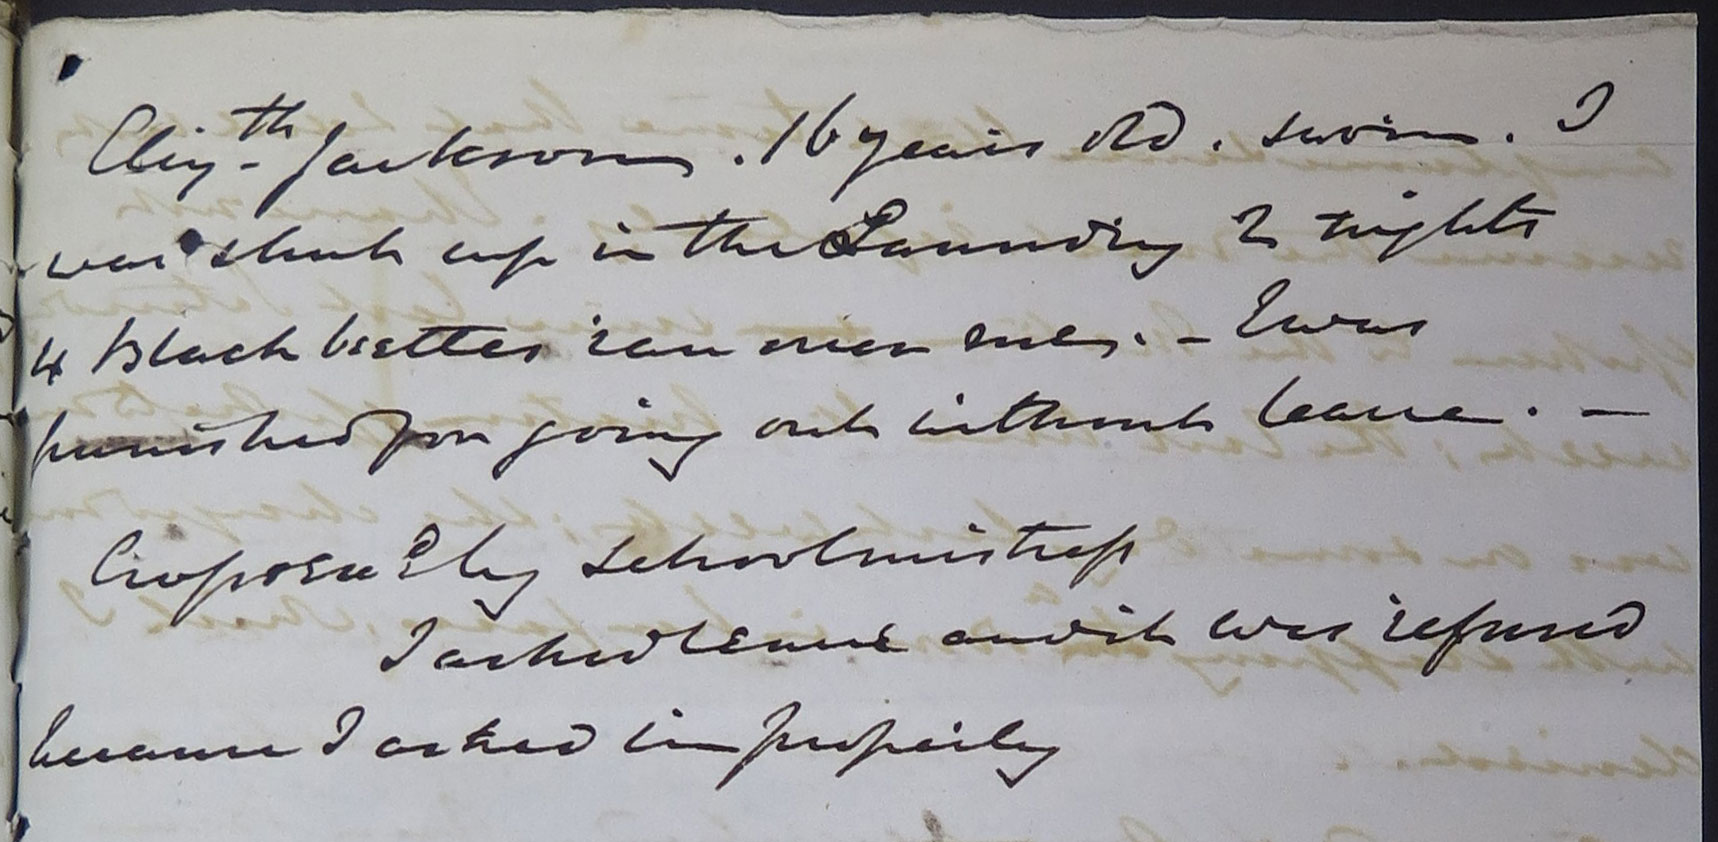 Eliz.th Jackson . 16 years old . sworn . I
was shut up in the Laundry 2 nights
& Black beetles ran over me . – I was
punished for going out without leave . –
Cross Ex by Schoolmistress
I asked leave and it was refused
because I asked improperly